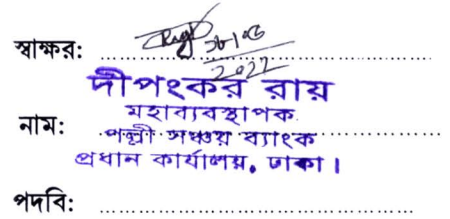 স্বাক্ষর: ........................................
২০২২
দীপংকর রায়
মহাব্যবস্থাপক
নাম: ........................................
পল্লী সঞ্চয় ব্যাংক
প্রধান কার্যালয়, ঢাকা।
পদবি: ........................................